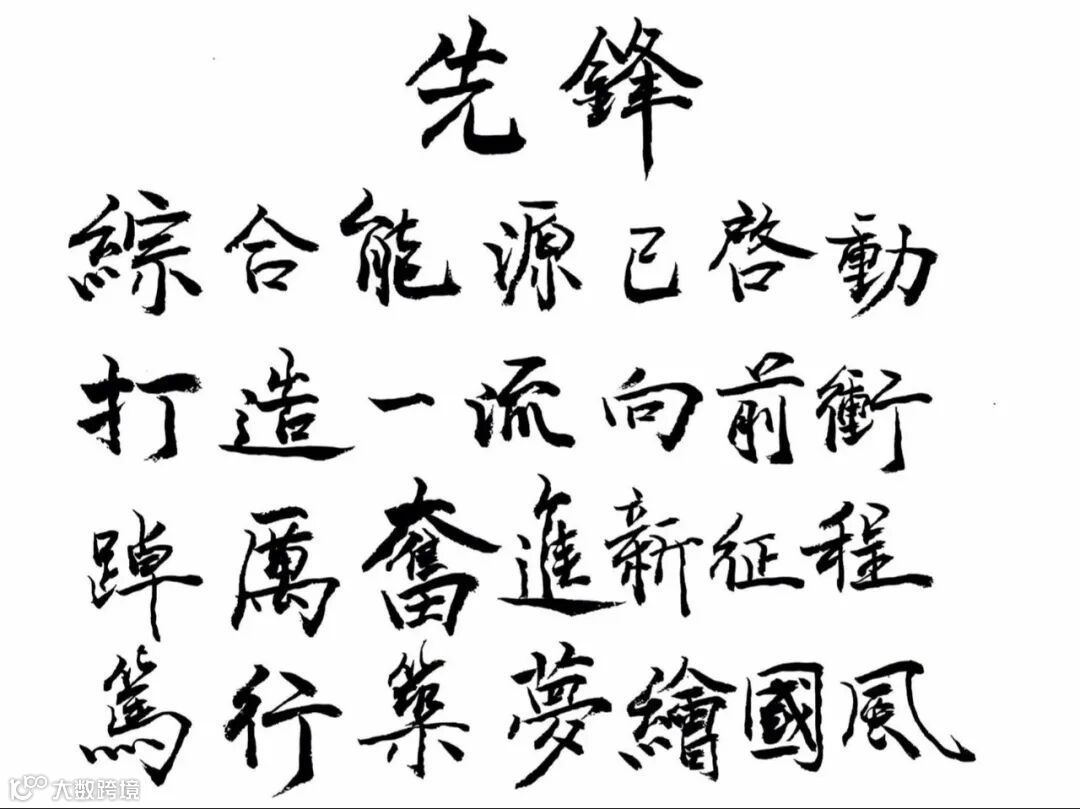 先鋒
綜合能源已啓動
打造一流向前衝
踔厲奮進新征程
篤行築夢繪國風
大数跨境